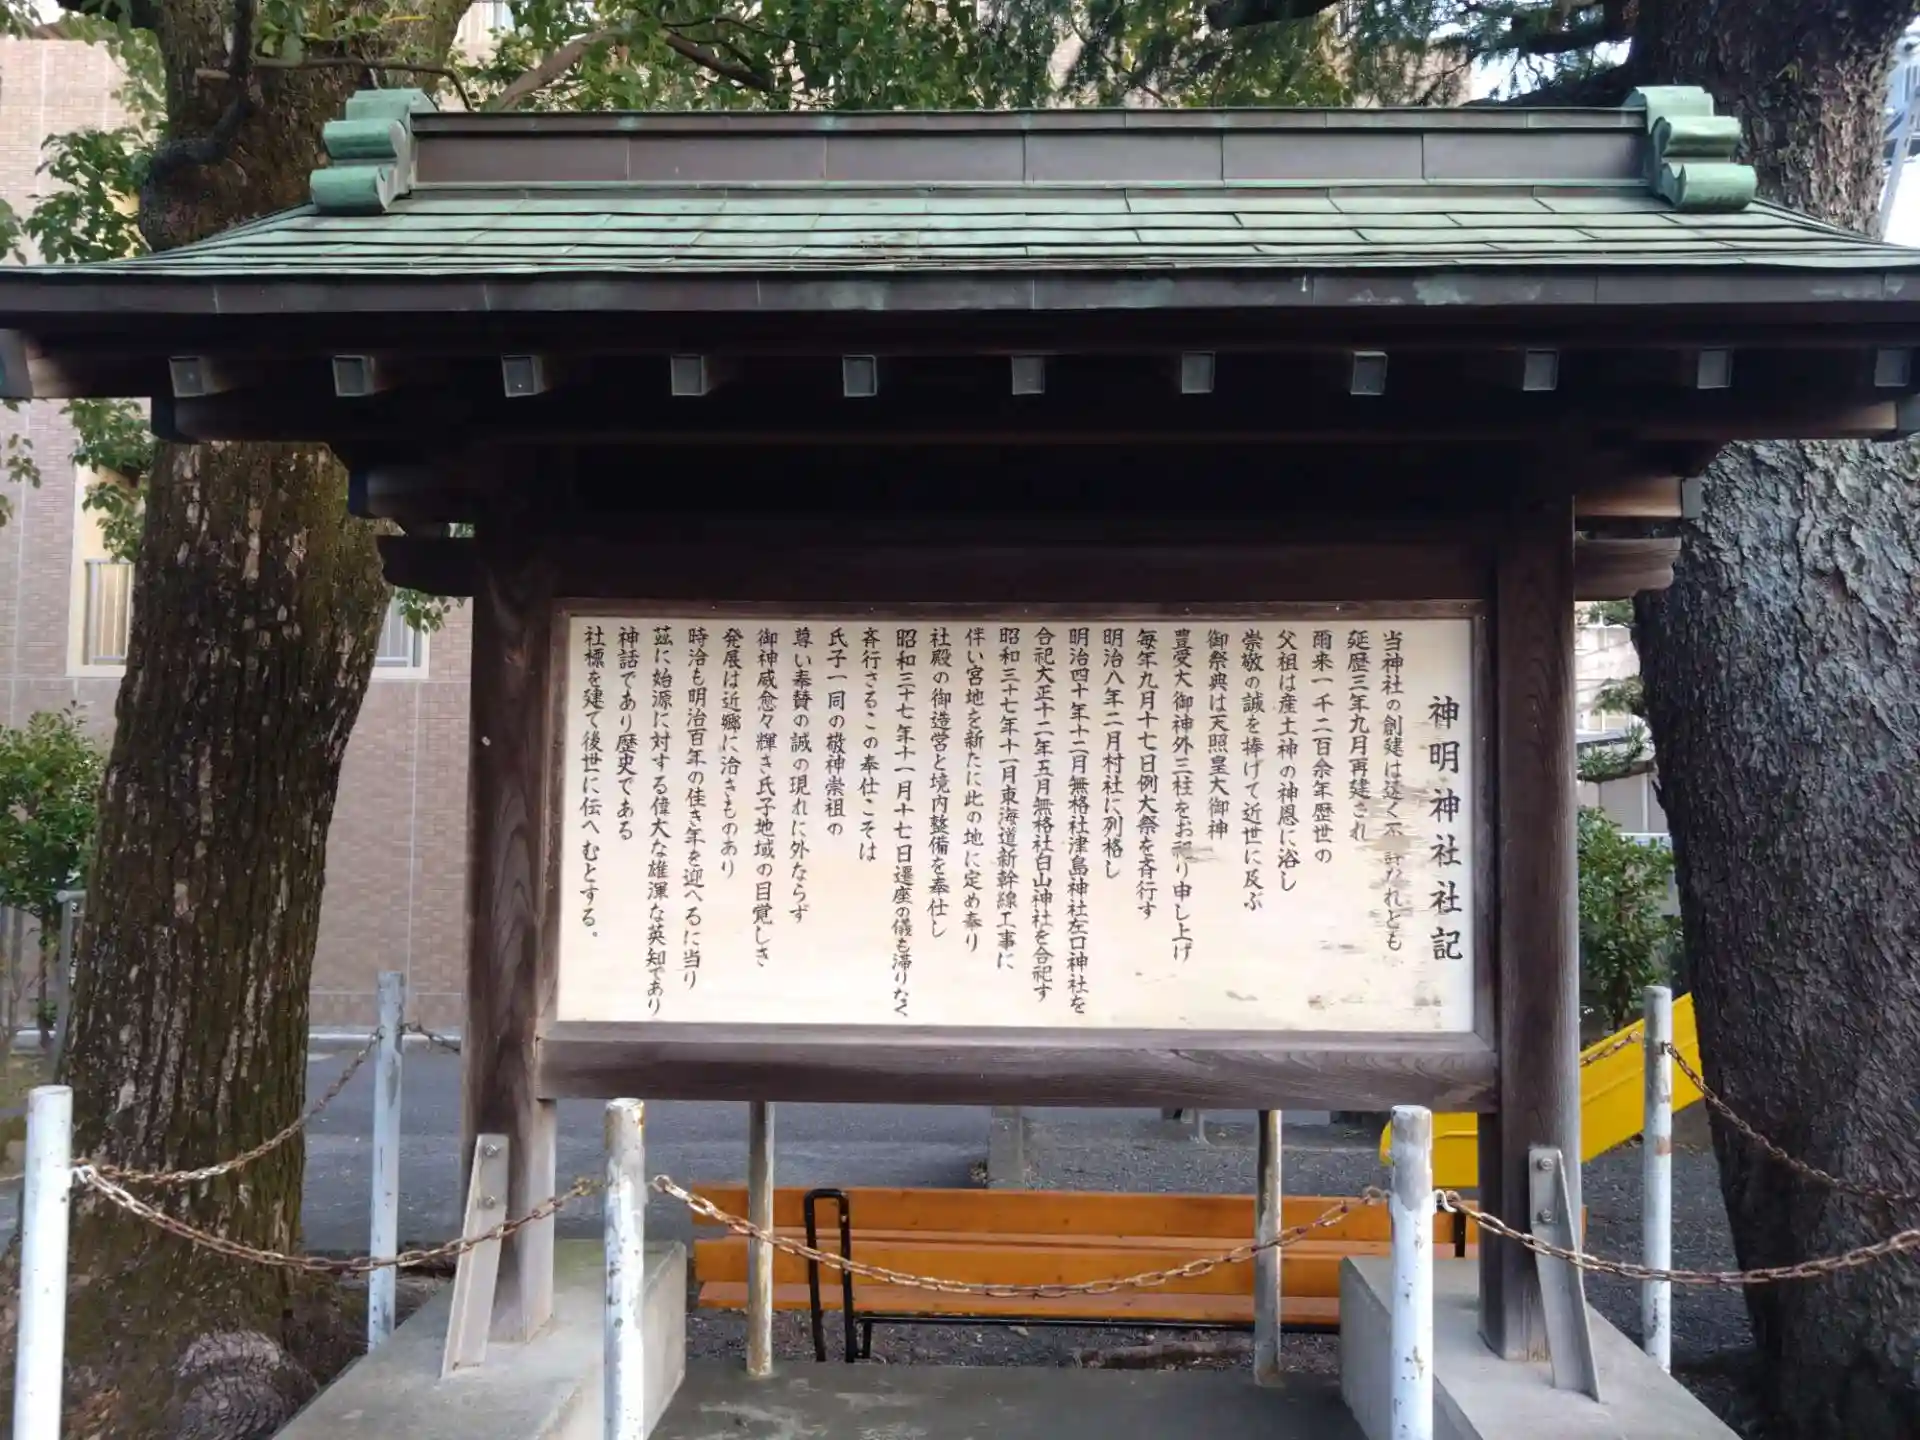 神明神社社記
当神社の創建は遠く不詳なれども
延歴三年九月再建され
爾来一千二百余年歴世の
父祖は産土神の神恩に浴し
崇敬の誠を捧げて近世に及ぶ
御祭典は天照皇大御神
豊受大御神外三柱をお祀り申し上げ
毎年九月十七日例大祭を斉行す
明治八年二月村社に列格し
明治四十年十二月無格社津島神社左口神社を
合祀大正十二年五月無格社白山神社を合祀す
昭和三十七年十一月東海道新幹線工事に
伴い宮地を新たに此の地に定め奉り
社殿の御造営と境内整備を奉仕し
昭和三十七年十一月十七日遷座の儀も滞りなく
斉行さるこの奉仕こそは
氏子一同の敬神崇祖の
尊い奉賛の誠の現れに外ならず
御神威愈々輝き氏子地域の目覚しき
発展は近郷に洽きものあり
時洽も明治百年の佳き年を迎へるに当り
茲に始源に対する偉大な雄渾な英知であり
神話であり歴史である
社標を建て後世に伝へむとする。